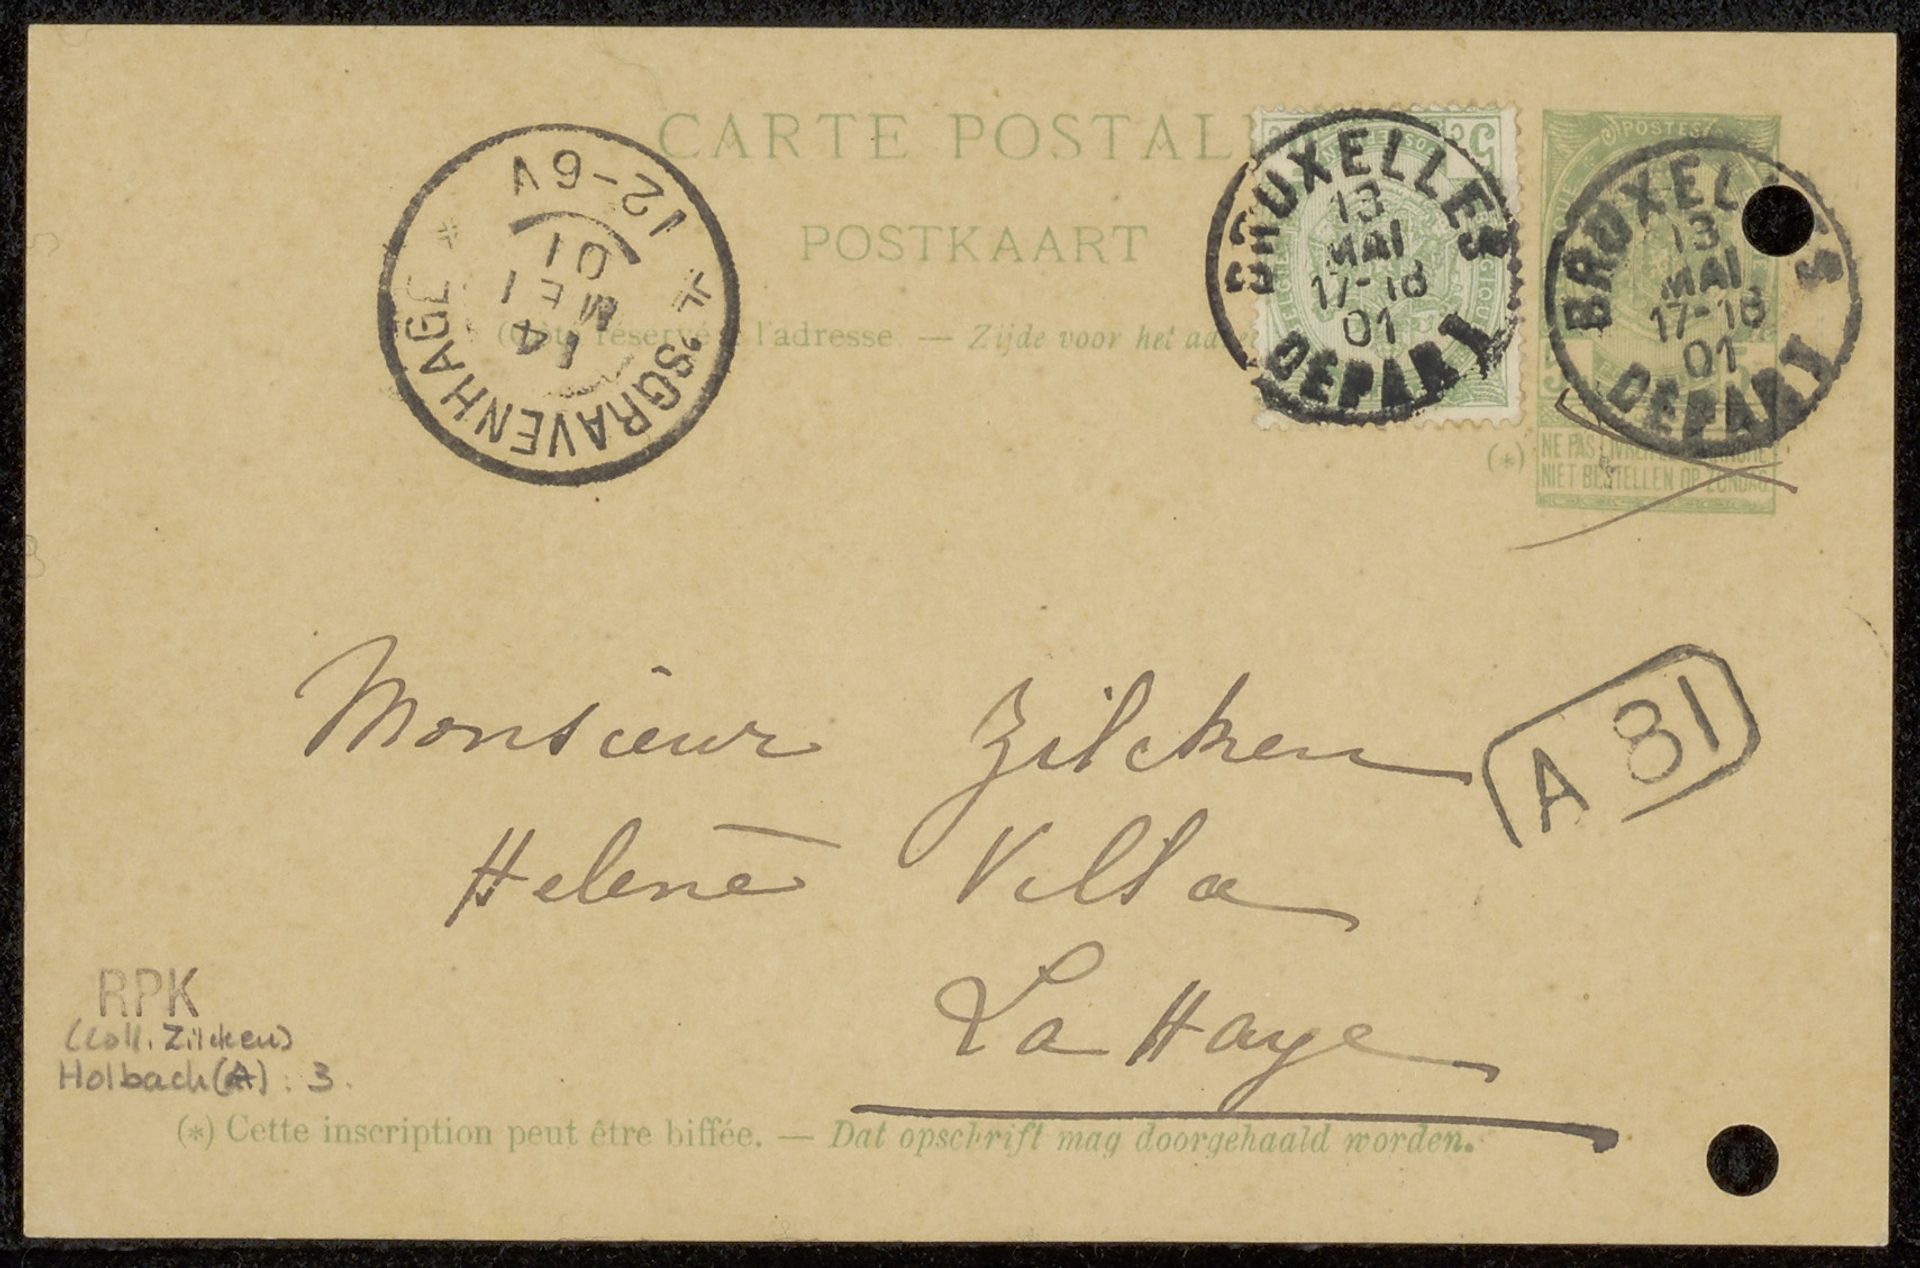 CARTE POSTALE
POSTKAART
(Côté réservé à l'adresse. — Zijde voor het ad
'SGRAVENHAGE
12-6V
14
MEI
01
BRUXELLES
13
MAI
17-18
01
DEPART
5
5
POSTES
BRUXELLES
13
MAI
17-18
01
DEPART
5
5
(*)
NE PAS LIVRER
NIET BESTELLEN OP ZONDAG
Monsieur Zilcken
Helene Villa
La Haye
A 81
RPK
(Coll. Zilcken)
Holbach (A) : 3.
(*) Cette inscription peut être biffée. — Dat opschrift mag doorgehaald worden.